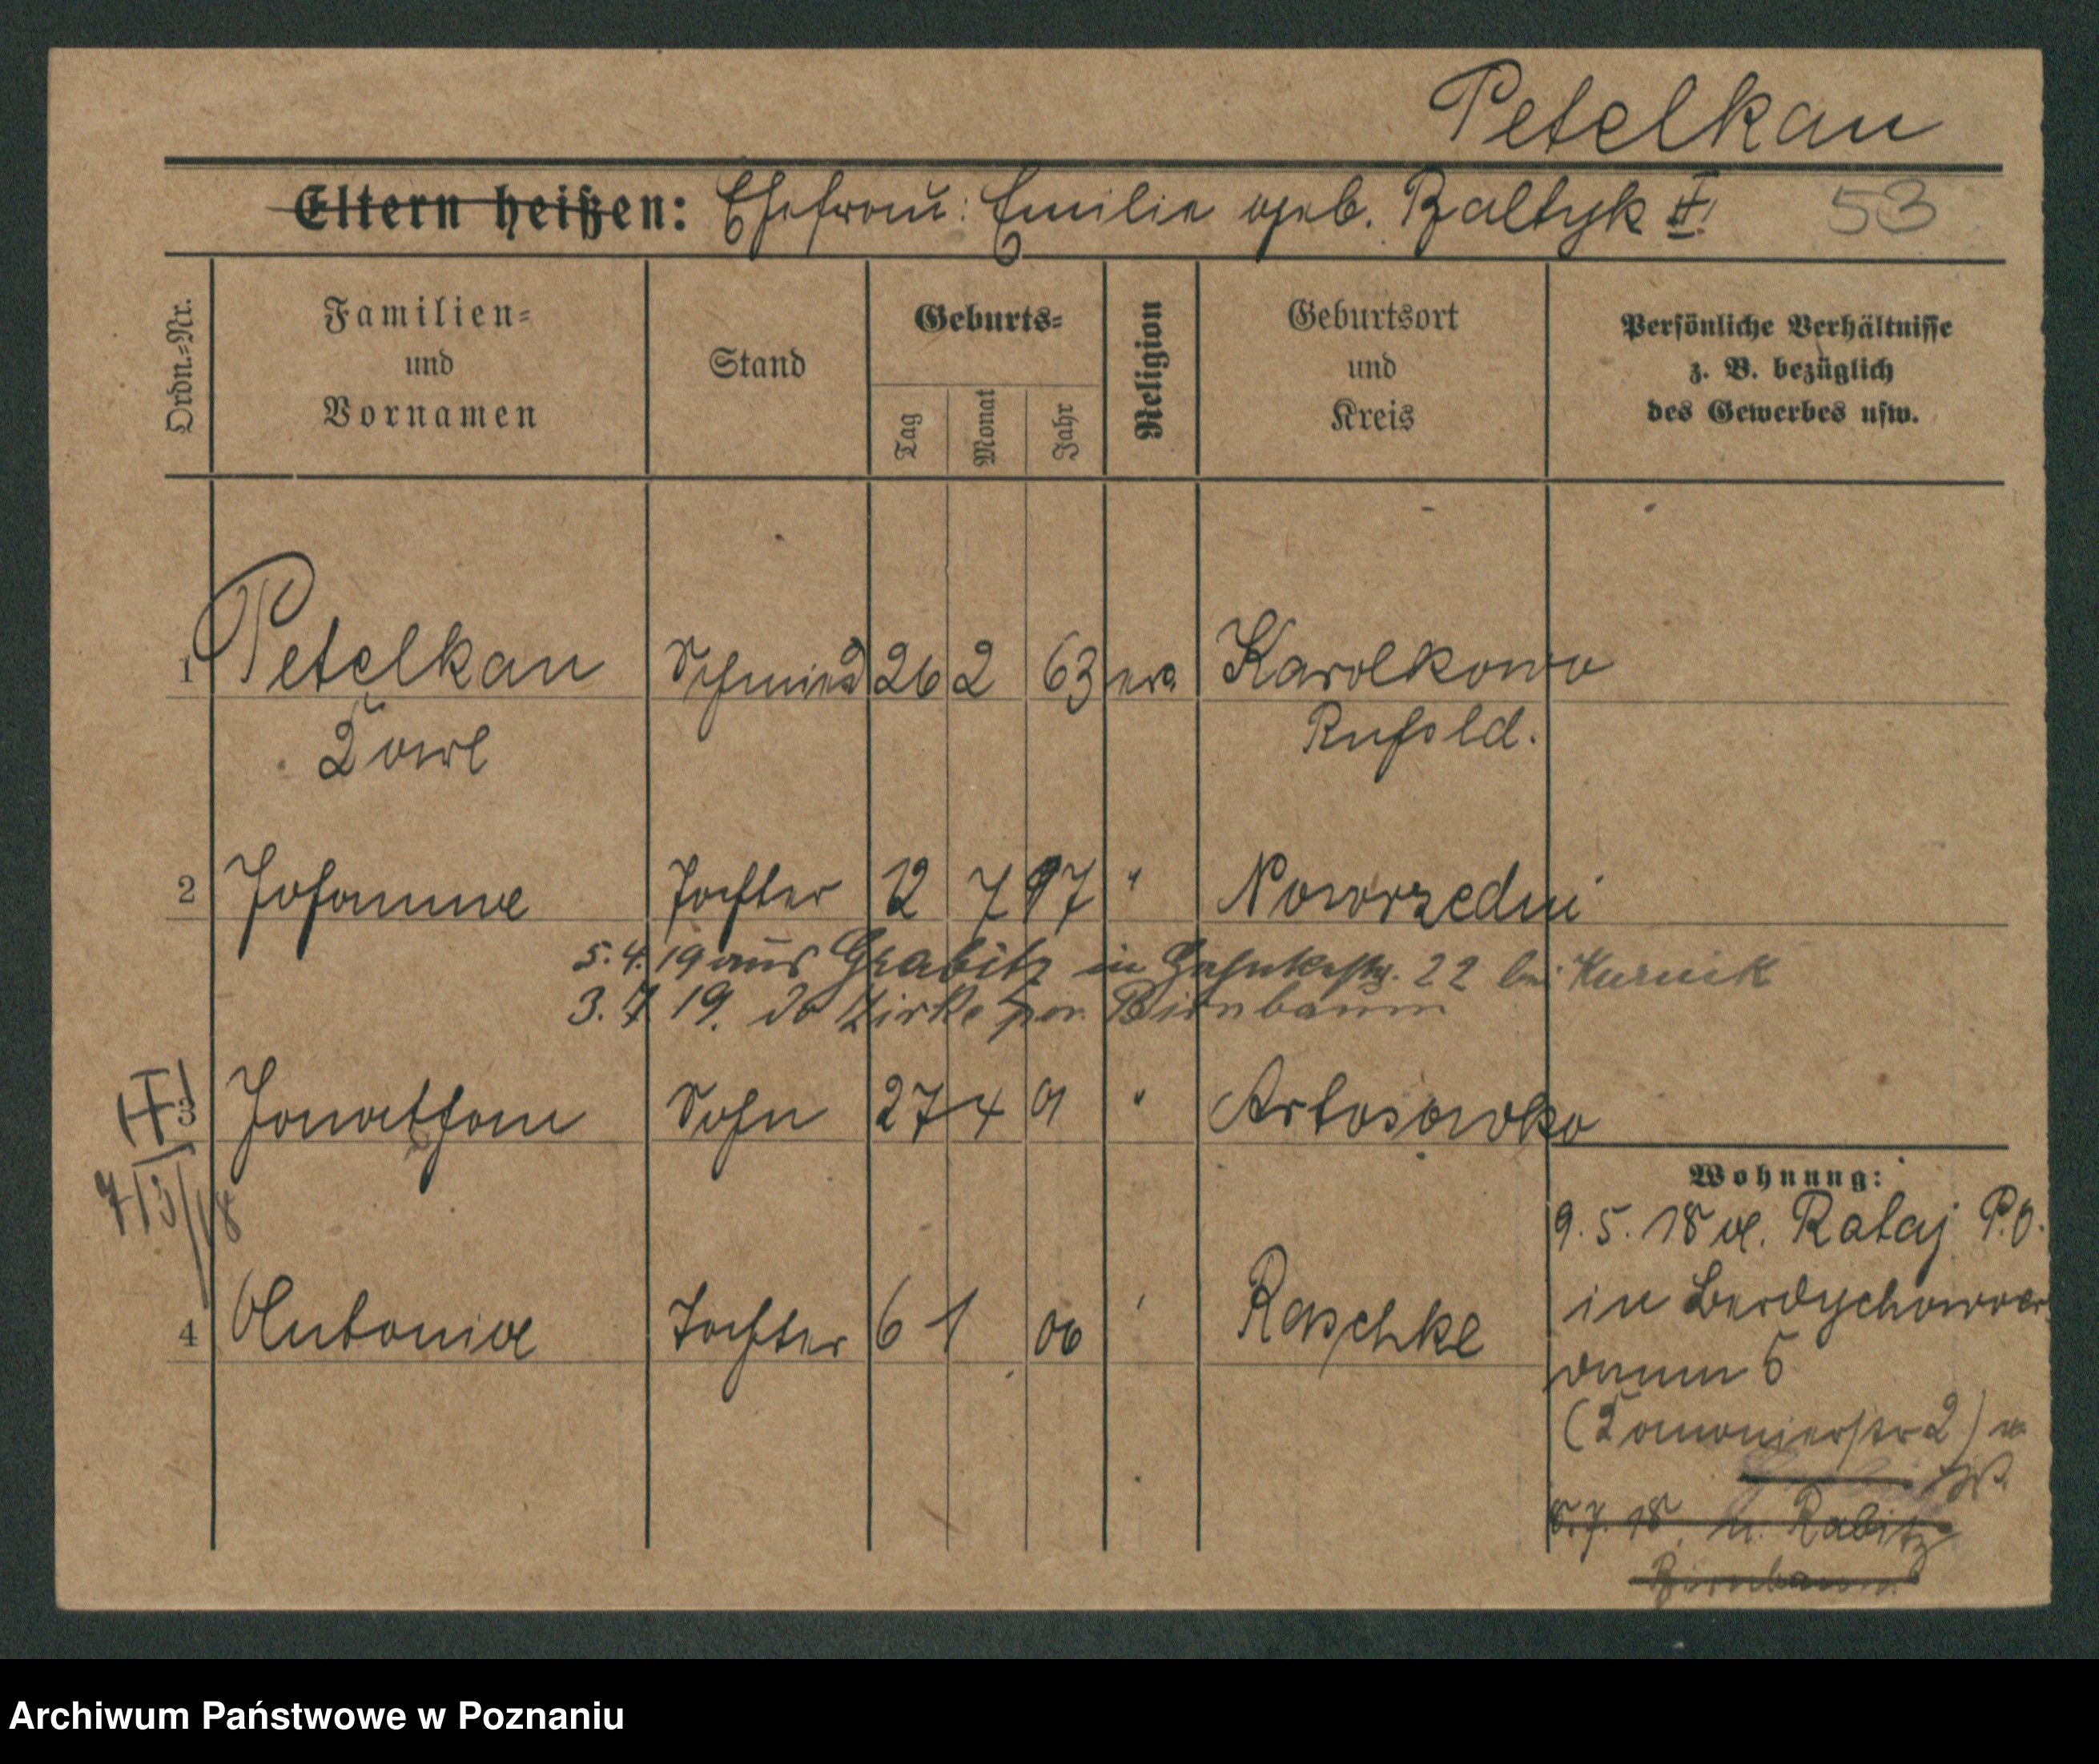 Petelkau
Eltern heißen: Ehefrau: Emilie geb. Baltyk II! 53
Ordn.=Nr.
Familien=
und
Vornamen
Stand
Geburts=
Tag
Monat
Jahr
Religion
Geburtsort
und
Kreis
Persönliche Verhältnisse
z. B. bezüglich
des Gewerbes usw.
1 Petelkau Schmied 26 2 63 Karolkowo
Karl
2 Johanna Tochter 12 7 97 "
5.4.19 aus Grabitz in 22 bei Kurnik
3.7.19. do Zirke Birnbaum
3 Jonathan Sohn 27 4 01 "
7/3/18
4 Antonia Tochter 6 1 06 Raschke
Wohnung:
9.5.18 Rataj P.O.
in
damm 5
8.7.18. n. Rabitz
Birnbaum
Archiwum Państwowe w Poznaniu